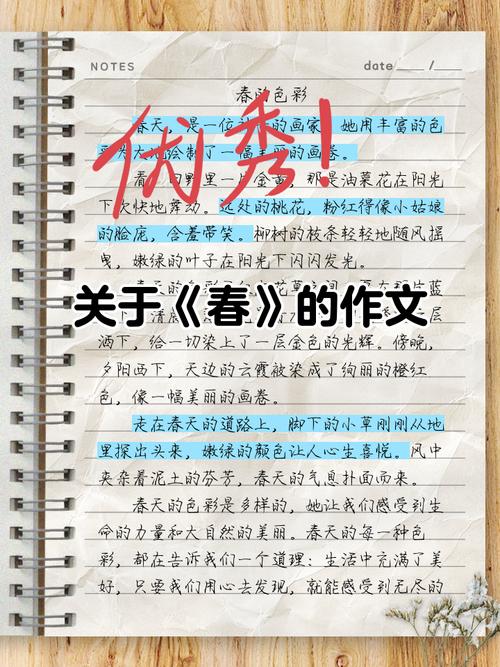 NOTES
date /
春的色彩
春天，是一位 的画家 她用丰富的色
彩为大地绘制了一幅美丽的画卷。
看 田野里一片金黄，那是油菜花在阳光
下欢快地舞动。远处的桃花，粉红得像小姑娘
的脸庞，含羞带笑。柳树的枝条轻轻地随风摇
曳，嫩绿的叶子在阳光下闪闪发光。
优秀！
关于《春》的作文
洒下，给一切染上了一层金色的光辉。傍晚，
夕阳西下，天边的云霞被染成了绚丽的橙红
色，像一幅美丽的画卷。
走在春天的道路上，脚下的小草刚刚从地
里探出头来，嫩绿的颜色让人心生喜悦。风中
夹杂着泥土的芬芳，春天的气息扑面而来。
春天的色彩是多样的，她让我们感受到生
命的力量和大自然的美丽。春天的每一种色
彩，都在告诉我们一个道理：生活中充满了美
好，只要我们用心去发现，就能感受到无尽的